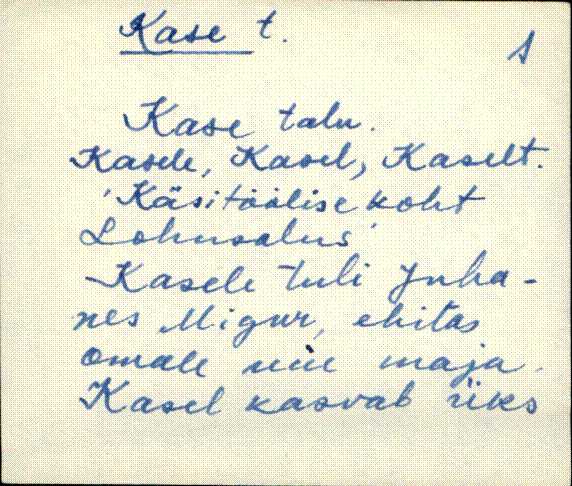 Kase t.
1
Kase talu.
Kasele, Kasel, Kaselt.
'Käsitöölise koht
Lohusalus'
Kasele tuli Juha-
nes Migur, ehitas
omale uue maja.
Kasel kasvab üks